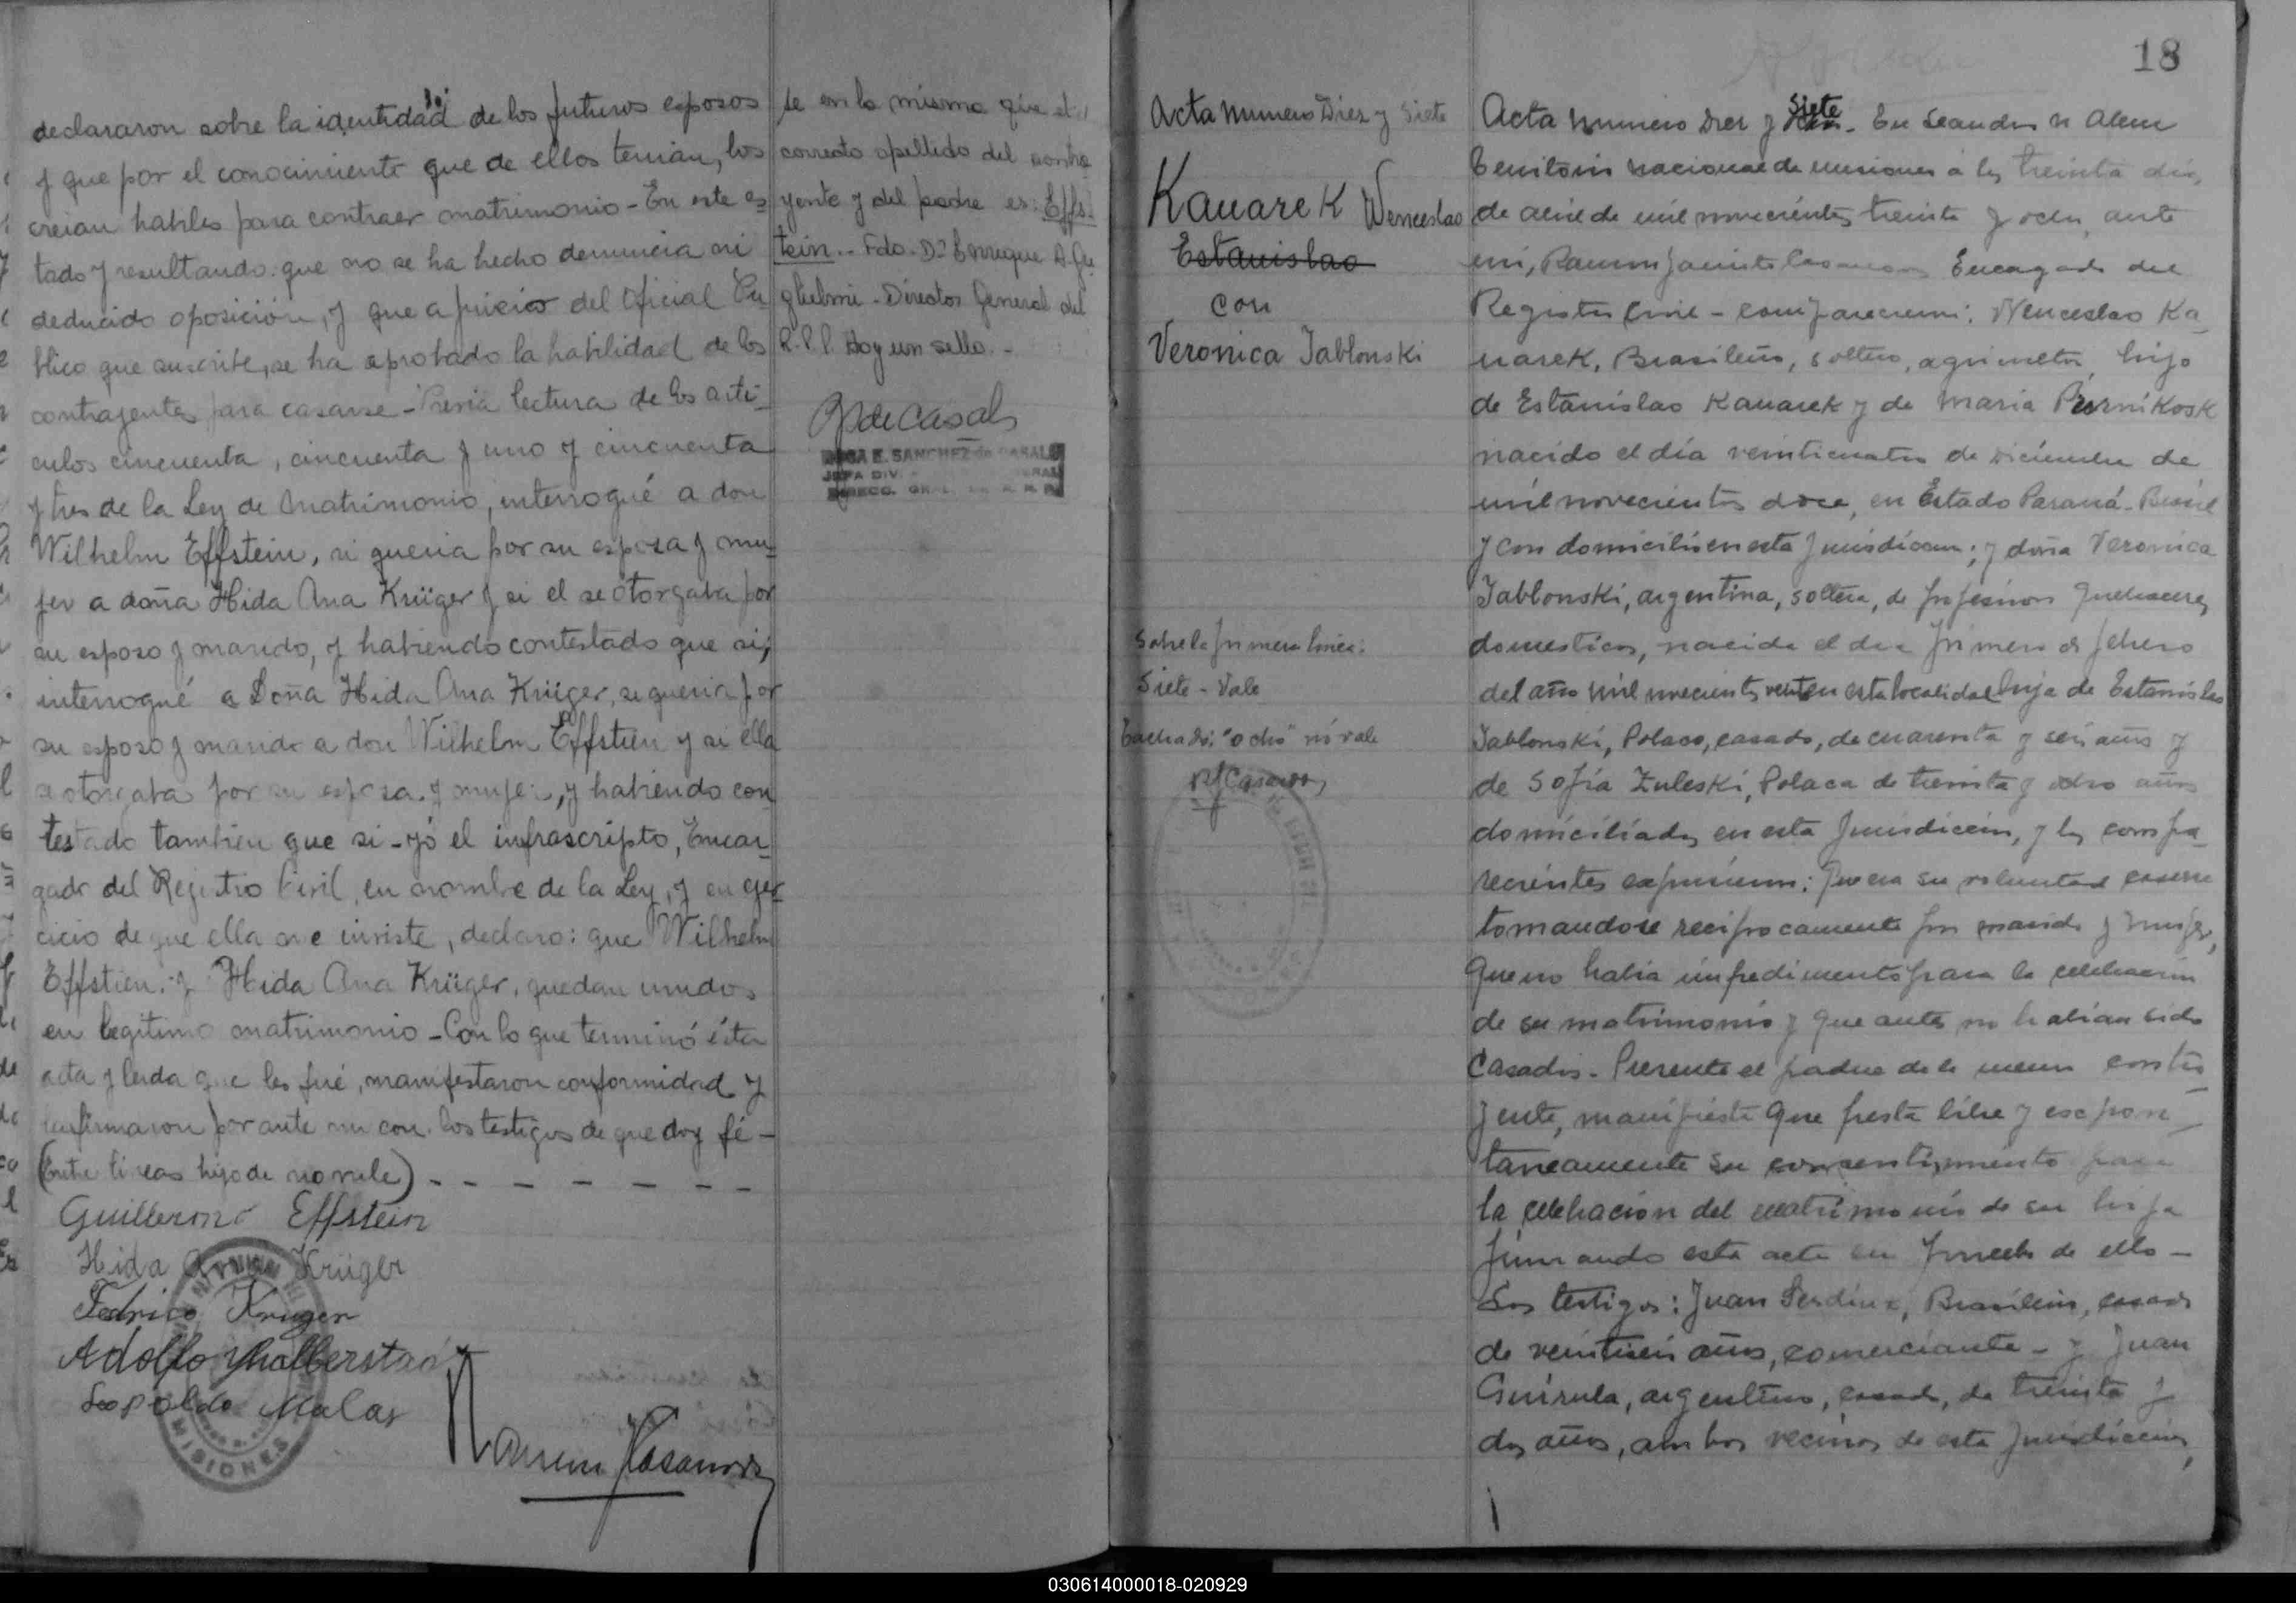 declararon sobre la identidad de los futuros esposos
y que por el conocimiento que de ellos tenian, los
creian habiles para contraer matrimonio - En este es
tado y resultando que no se ha hecho denuncia ni
deducido oposición, y que a juicio del Oficial Pu
blico que suscribe, se ha aprobado la habilidad de los
contrayentes para casarse - Previa lectura de los arti-
culos cincuenta, cincuenta y uno y cincuenta
y tres de la Ley de Matrimonio, interrogué a don
Wilhelm Effstein, si queria por su esposa y mu-
jer a doña Hida Ana Krüger y si el se otorgaba por
su esposo y marido, y habiendo contestado que si;
interrogué a Doña Hida Ana Krüger, si queria por
su esposo y marido a don Wilhelm Effstien y si ella
se otorgaba por su esposa y mujer, y habiendo con
testado tambien que si - yo el infrascripto, Encar-
gado del Registro Civil, en nombre de la Ley, y en ejer
cicio de que ella me inviste, declaro: que Wilhelm
Effstien y Hida Ana Krüger, quedan unidos
en legitimo matrimonio - Con lo que terminó ésta
acta y leida que les fué, manifestaron conformidad y
firmaron por ante mi con los testigos de que doy fé -
(Entre lineas hijo de no vale) - - - - - - -
Guillermo Effstein
Hida Ana Krüger
Fedrico Kruger
Adolfo
Leopoldo Malas
Ramon JCasanova
MISIONES
te en la misma que el
correcto apellido del contra
yente y del padre es: Effs-
tein.- Fdo. Dr Enrique A. Gu
glielmi - Director General del
R.P.P. Hay un sello. -
de Casals
E. SANCHEZ de CASALS
JEFA DIV.
DIRECC. GRAL.
18
Acta Numero Diez y Siete
Kauarek Wenceslao
Estanislao
con
Veronica Jablonski
Sobre la primera linea:
Siete - Vale
Tachado: "ocho" no vale
RJCasanova
Siete
Acta Numero Diez y - En Leandro N Alem
Territorio nacional de Misiones a los treinta dias
de abril de mil novecientos treinta y ocho, ante
mi, Ramon Jacinto Casanova Encargado del
Registro Civil - comparecieron: Wenceslao Ka-
uarek, Brasileño, soltero, agricultor, hijo
de Estanislao Kauarek y de Maria
nacido el día veinticuatro de Diciembre de
mil novecientos doce, en Estado Paraná - Brasil
y con domicilio en esta Jurisdiccion; y doña Veronica
Jablonski, argentina, soltera, de profesion quehaceres
domesticos, nacida el dia primero de febrero
del año mil novecientos veinte en esta localidad hija de Estanislao
Jablonski, Polaco, casado, de cuarenta y seis años y
de Sofia Zuleski, Polaca de treinta y ocho años
domiciliados en esta Jurisdiccion, y los compa-
recientes expusieron: Que era su voluntad casarse
tomandose reciprocamente por marido y mujer,
Que no habia impedimento para la celebracion
de su matrimonio y que antes no habian sido
Casados - Presente el padre de la menor contra
yente, manifiesta que presta libre y espon-
taneamente su consentimiento para
la celebracion del matrimonio de su hija
firmando esta acta en prueba de ello -
Los testigos: Juan Brasileño, casado
de veintiseis años, comerciante - y Juan
argentino, casado, de treinta y
dos años, ambos vecinos de esta Jurisdiccion,
030614000018-020929